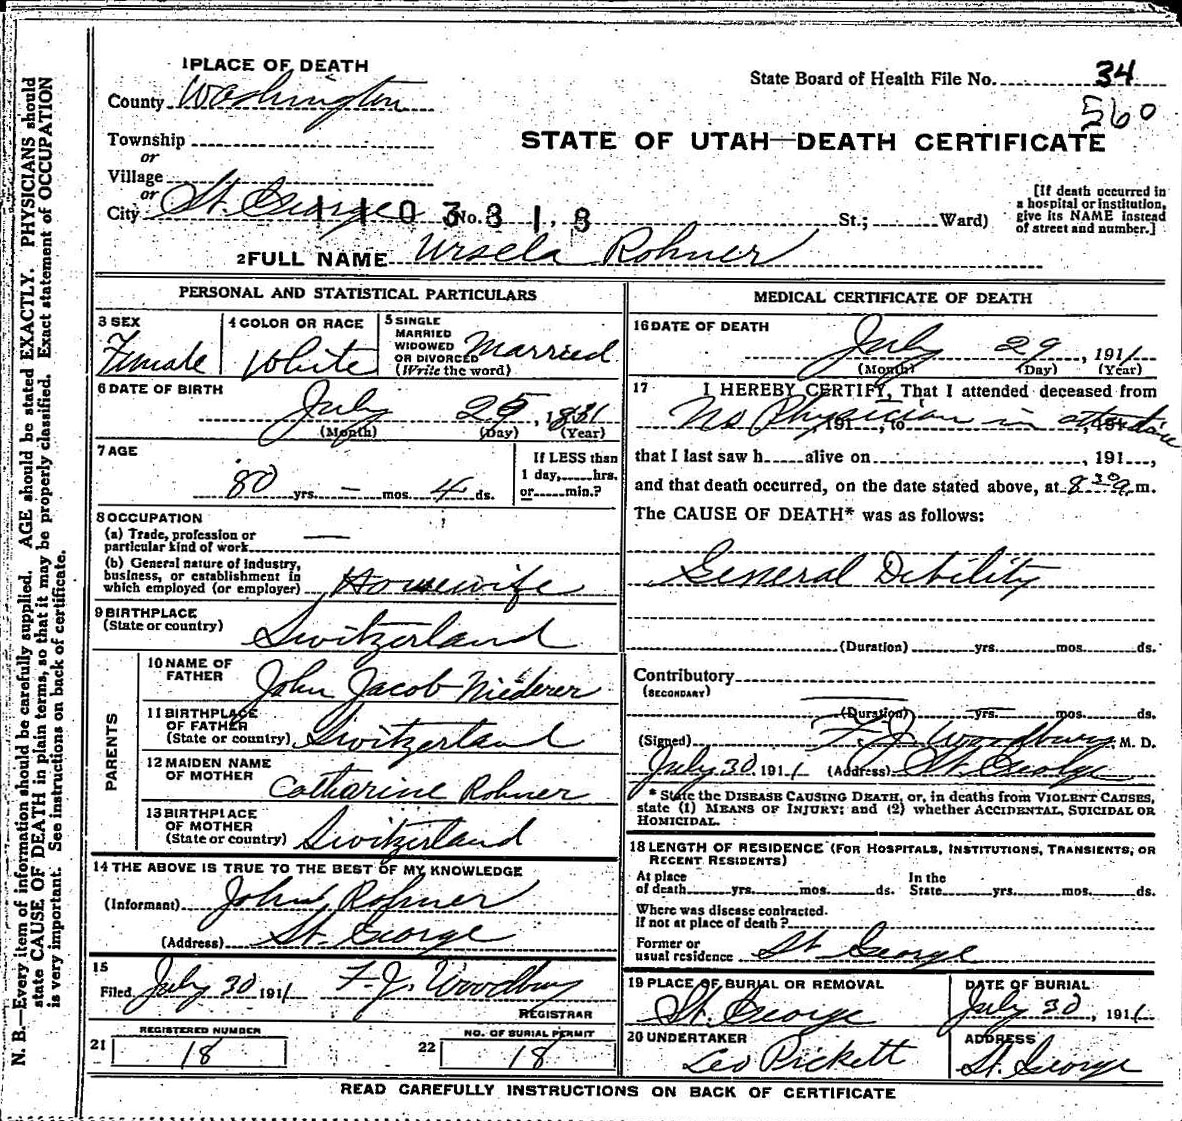 1 PLACE OF DEATH
County Washington
Township
or
Village
or
City St. George No. St.; Ward)
1103318
State Board of Health File No. 34
560
STATE OF UTAH—DEATH CERTIFICATE
[If death occurred in
a hospital or institution,
give its NAME instead
of street and number.]
2 FULL NAME Ursela Rohner
PERSONAL AND STATISTICAL PARTICULARS
3 SEX
Female
4 COLOR OR RACE
White
5 SINGLE
MARRIED
WIDOWED
OR DIVORCED
(Write the word)
Married
6 DATE OF BIRTH
July 25, 1831
(Month) (Day) (Year)
7 AGE
80 yrs. — mos. 4 ds.
If LESS than
1 day, hrs.
or min.?
8 OCCUPATION
(a) Trade, profession or
particular kind of work —
(b) General nature of industry,
business, or establishment in
which employed (or employer) Housewife
9 BIRTHPLACE
(State or country) Switzerland
PARENTS
10 NAME OF
FATHER John Jacob Niederer
11 BIRTHPLACE
OF FATHER
(State or country) Switzerland
12 MAIDEN NAME
OF MOTHER Catharine Rohner
13 BIRTHPLACE
OF MOTHER
(State or country) Switzerland
14 THE ABOVE IS TRUE TO THE BEST OF MY KNOWLEDGE
(Informant) John Rohner
(Address) St. George
15
Filed July 30 1911 F. J. Woodbury
REGISTRAR
REGISTERED NUMBER
21 18
NO. OF BURIAL PERMIT
22 18
MEDICAL CERTIFICATE OF DEATH
16 DATE OF DEATH
July 29, 1911
(Month) (Day) (Year)
17 I HEREBY CERTIFY, That I attended deceased from
, 191 , to , 191
No Physician in attendance
that I last saw h alive on , 191 ,
and that death occurred, on the date stated above, at 8 30 a m.
The CAUSE OF DEATH* was as follows:
General Debility
(Duration) yrs. mos. ds.
Contributory
(SECONDARY)
(Duration) yrs. mos. ds.
(Signed) F. J. Woodbury, M. D.
July 30 1911 (Address) St. George
* State the DISEASE CAUSING DEATH, or, in deaths from VIOLENT CAUSES,
state (1) MEANS OF INJURY; and (2) whether ACCIDENTAL, SUICIDAL OR
HOMICIDAL.
18 LENGTH OF RESIDENCE (FOR HOSPITALS, INSTITUTIONS, TRANSIENTS, OR
RECENT RESIDENTS)
At place
of death yrs. mos. ds.
In the
State yrs. mos. ds.
Where was disease contracted.
if not at place of death?
Former or
usual residence St George
19 PLACE OF BURIAL OR REMOVAL
St. George
DATE OF BURIAL
July 30, 1911
20 UNDERTAKER
Leo Pickett
ADDRESS
St. George
READ CAREFULLY INSTRUCTIONS ON BACK OF CERTIFICATE
N. B.—Every item of information should be carefully supplied. AGE should be stated EXACTLY. PHYSICIANS should
state CAUSE OF DEATH in plain terms, so that it may be properly classified. Exact statement of OCCUPATION
is very important. See instructions on back of certificate.